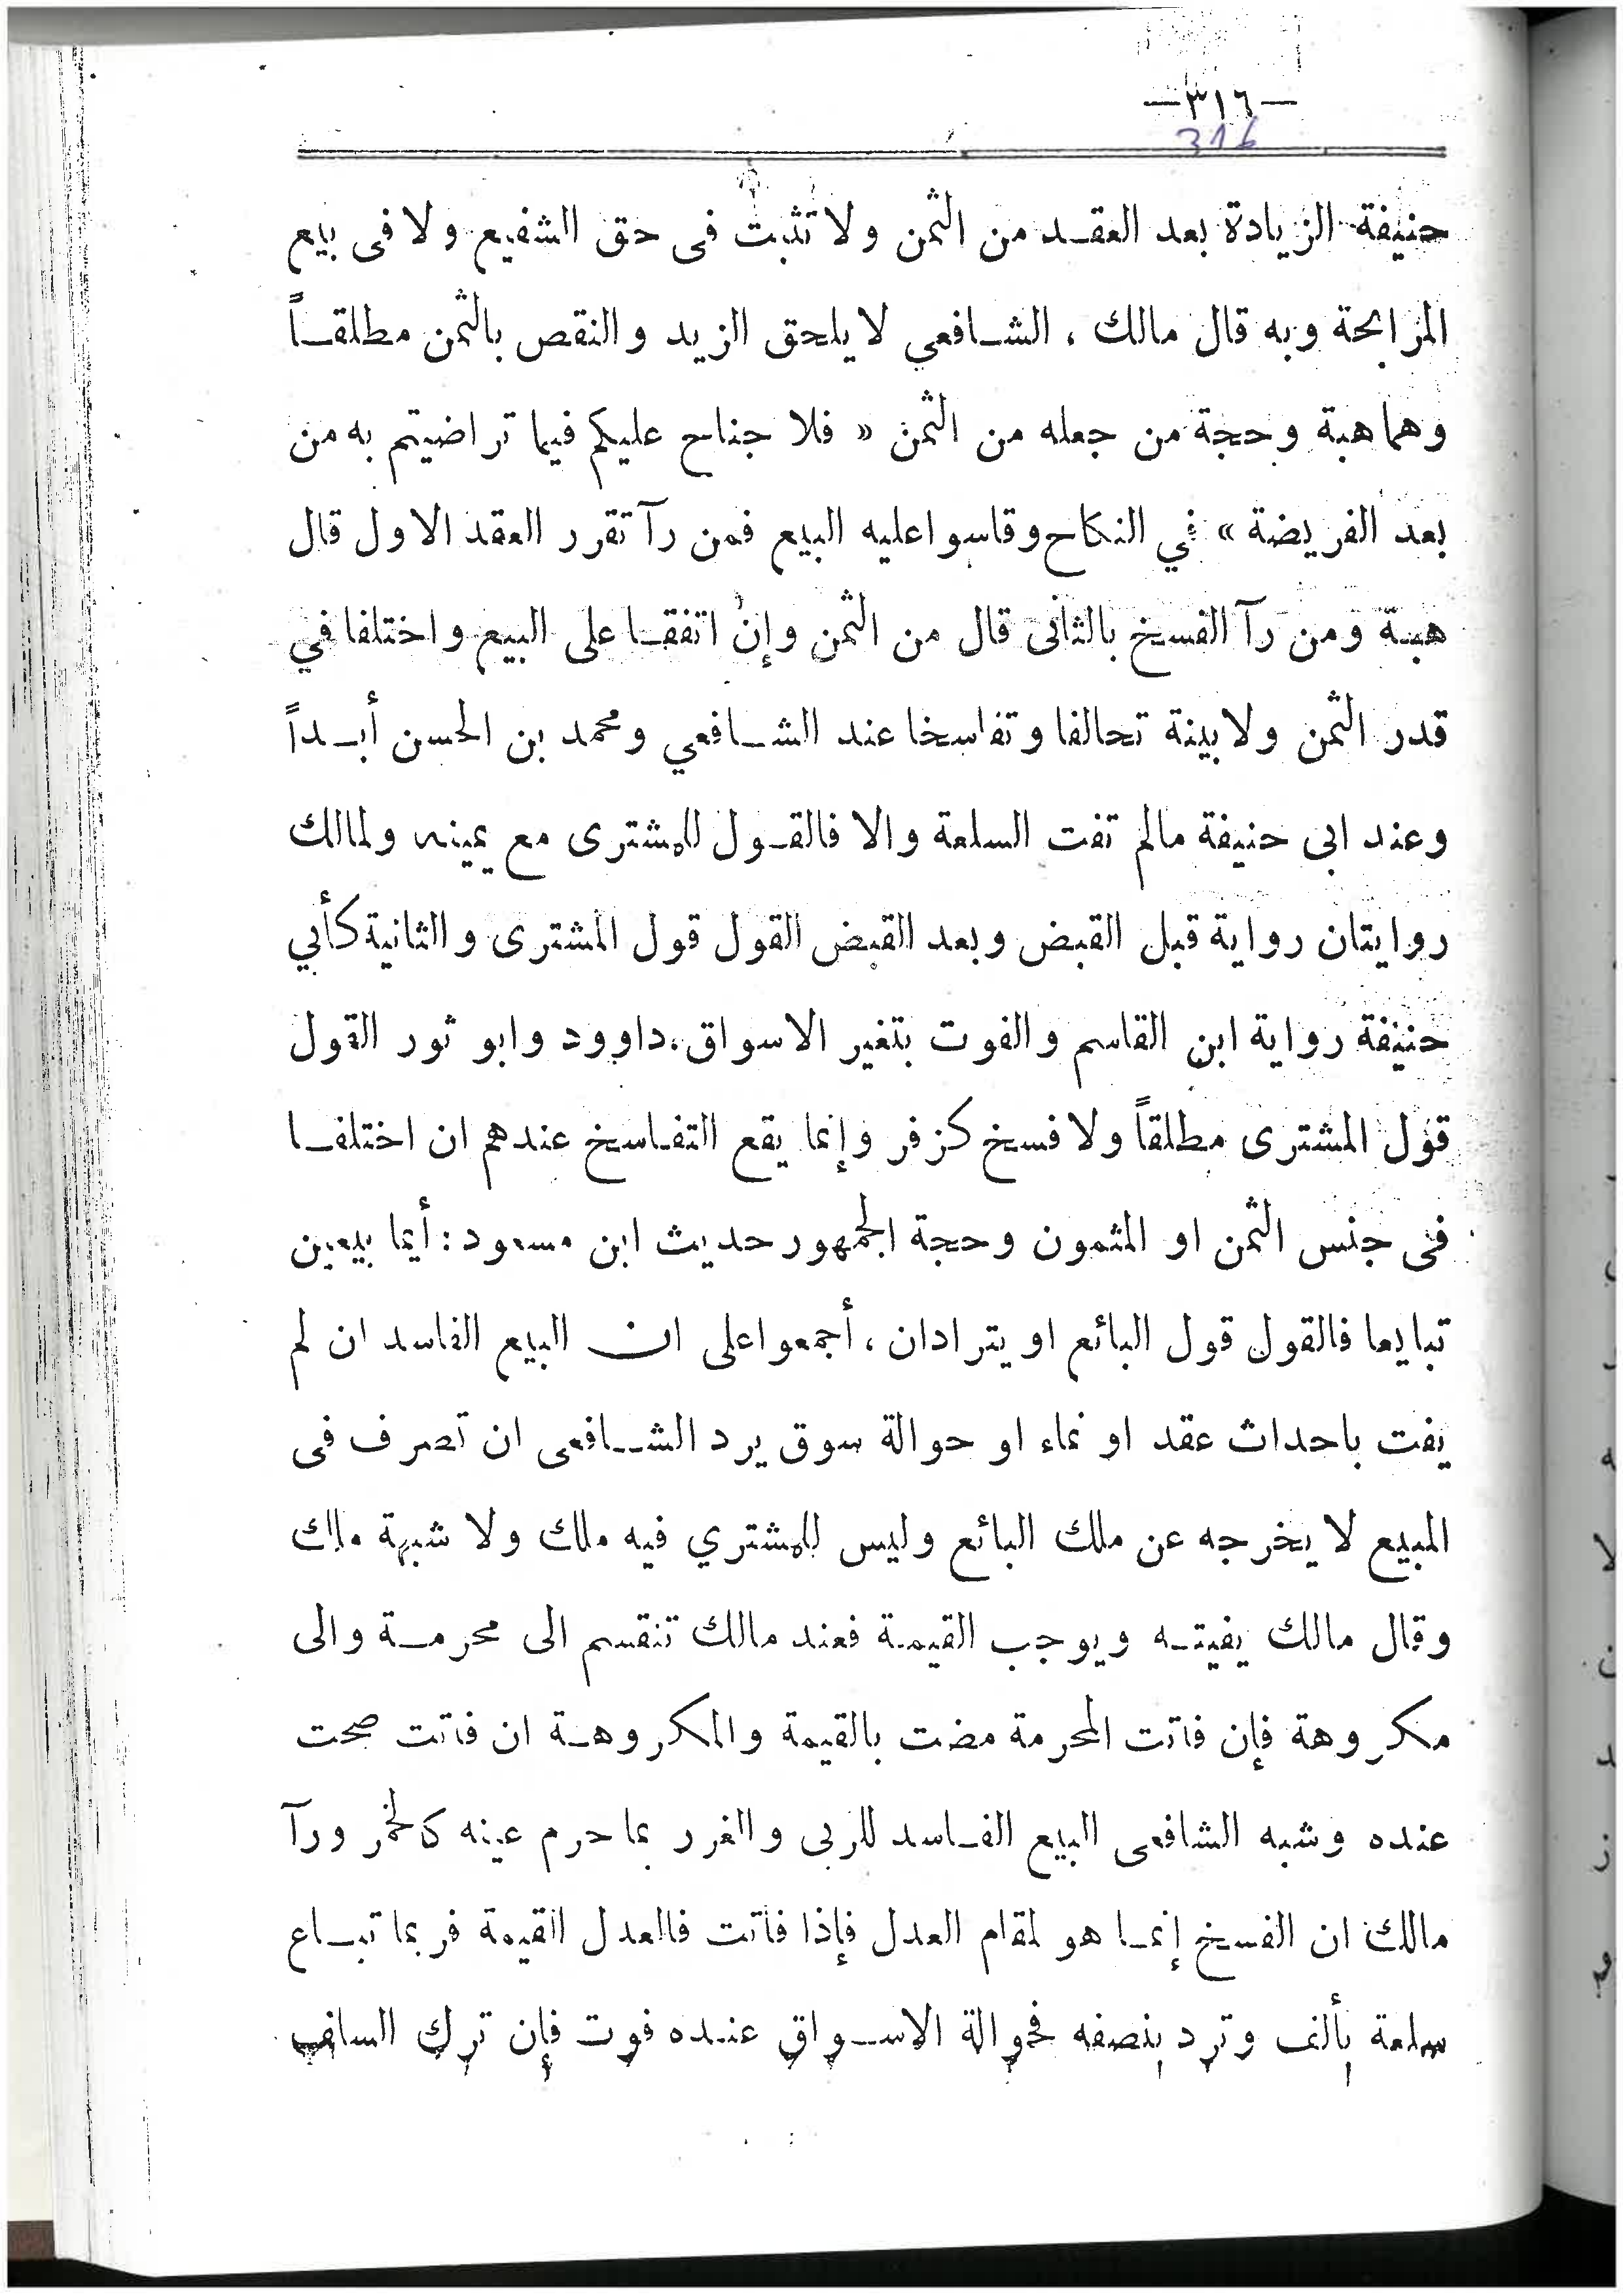 —٣١٦—
316
حنيفة الزيادة بعد العقـد من الثمن ولا تثبت فى حق الشفيع ولا فى بيع
المرابحة وبه قال مالك ، الشـافعي لا يلحق الزيد والنقص بالثمن مطلقـاً
وهما هبة وحجة من جعله من الثمن « فلا جناح عليكم فيما تراضيتم به من
بعد الفريضة » في النكاح وقاسوا عليه البيع فمن رآ تقرر العقد الاول قال
هبـة ومن رآ الفسخ بالثانى قال من الثمن وإن اتفقـا على البيع واختلفا في
قدر الثمن ولا بينة تحالفا وتفاسخا عند الشـافعي ومحمد بن الحسن أبـداً
وعند ابى حنيفة مالم تفت السلعة والا فالقـول للمشترى مع يمينه ولمالك
روايتان رواية قبل القبض وبعد القبض القول قول المشترى والثانية كأبي
حنيفة رواية ابن القاسم والفوت بتغير الاسواق، داوود وابو ثور القول
قول المشترى مطلقاً ولا فسخ كزفر وإنما يقع التفاسخ عندهم ان اختلفـا
فى جنس الثمن او المثمون وحجة الجمهور حديث ابن مسعود : أيما بيعين
تبايعا فالقول قول البائع او يترادان ، أجمعوا على ان البيع الفاسد ان لم
يفت باحداث عقد او نماء او حوالة سوق يرد الشـافعى ان تصرف فى
المبيع لا يخرجه عن ملك البائع وليس للمشتري فيه ملك ولا شبهة ملك
وقال مالك يفيتـه ويوجب القيمة فعند مالك تنقسم الى محرمـة والى
مكروهة فإن فاتت المحرمة مضت بالقيمة والمكروهـة ان فاتت صحت
عنده وشبه الشافعى البيع الفـاسد للربى والغرر بما حرم عينه كالخمر ورآ
مالك ان الفسخ إنمـا هو لمقام العدل فإذا فاتت فالعدل القيمة فربما تبـاع
سلعة بألف وترد بنصفه فحوالة الاسـواق عنـده فوت فإن ترك السلف